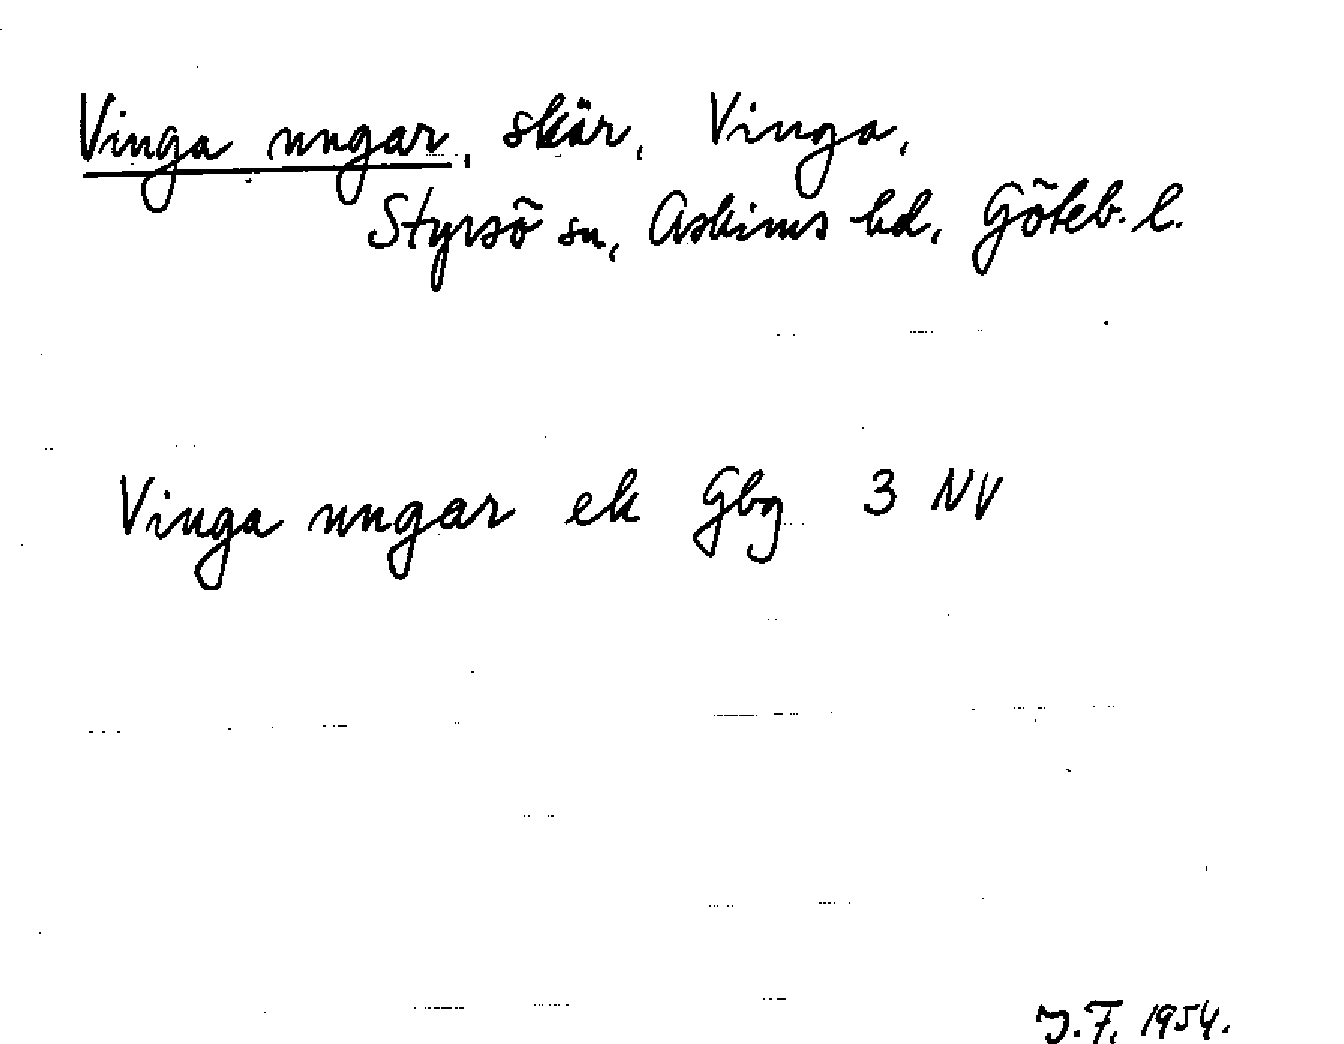 Vinga ungar, skär, Vinga,
Styrsö sn, Askims hd, Göteb. l.
Vinga ungar ek Gbg 3 NV
J.F. 1954.